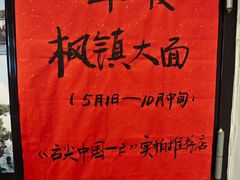 枫镇大面
(5月1日一10月中旬)
《舌尖中国一2》实拍推荐店